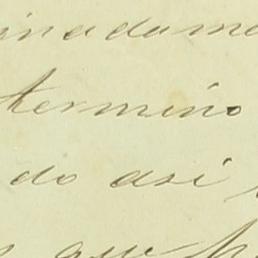 inadame
termino
do asi
que